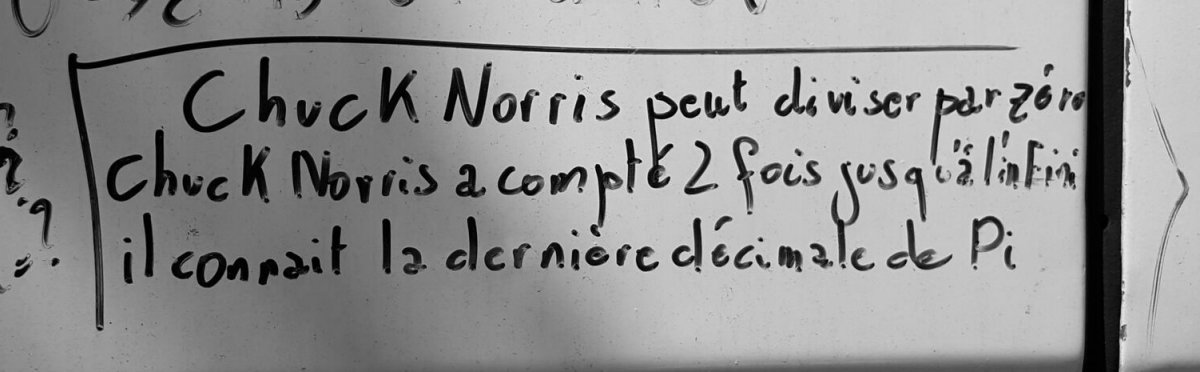 Chuck Norris peut diviser par zéro
Chuck Norris a compté 2 fois jusqu'à l'infini
il connait la dernière décimale de Pi